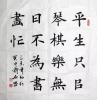 平生只㠯
琴棋樂无
日不為書
畫忙